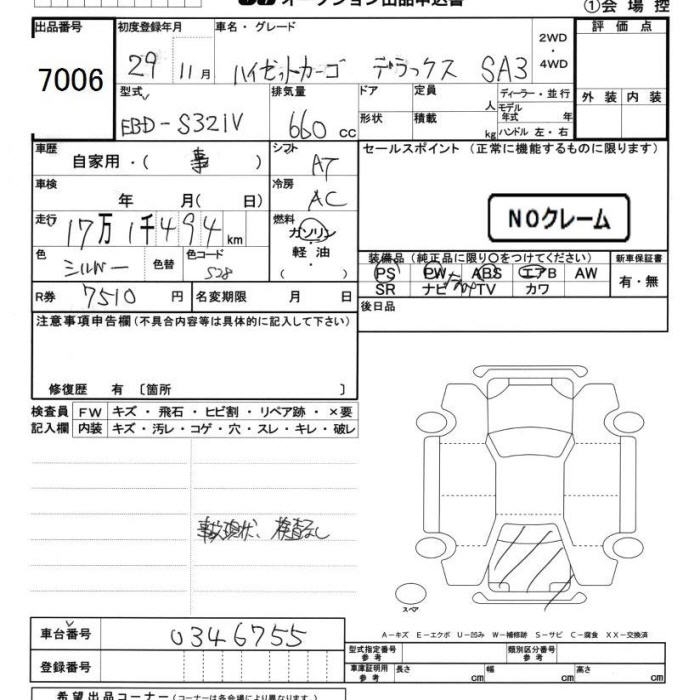 オークション出品申込書 ①会場控
出品番号 初度登録年月 車名・グレード 評価点
7006 29 11月 ハイゼットカーゴ デラックス SA3 2WD・4WD
型式 排気量 ドア 定員 人 ディーラー・並行 外装 内装
EBD-S321V 660cc 形状 積載 kg モデル年式 年
ハンドル 左・右
車歴 自家用・(事) シフト AT セールスポイント(正常に機能するものに限ります)
車検 年 月(日) 冷房 AC
NOクレーム
走行 17万1千494km 燃料 ガソリン・軽油・( )
色 シルバー 色替 色コード S28
装備品(純正品に限り○をつけてください) 新車保証書
PS PW ABS エアB AW 有・無
SR ナビ TV カワ
R券 7510円 名変期限 月 日 後日品
注意事項申告欄(不具合内容等は具体的に記入して下さい)
修復歴 有〔箇所 〕
検査員 FW キズ・飛石・ヒビ割・リペア跡・×要
記入欄 内装 キズ・汚レ・コゲ・穴・スレ・キレ・破レ
事故現状、検査なし
スペア
A-キズ E-エクボ U-凹み W-補修跡 S-サビ C-腐食 XX-交換済
車台番号 0346755
型式指定番号 参考 類別区分番号 参考
登録番号 車庫証明用 参考 長さ cm 幅 cm 高さ cm
希望出品コーナー(コーナーは各会場により異なります)